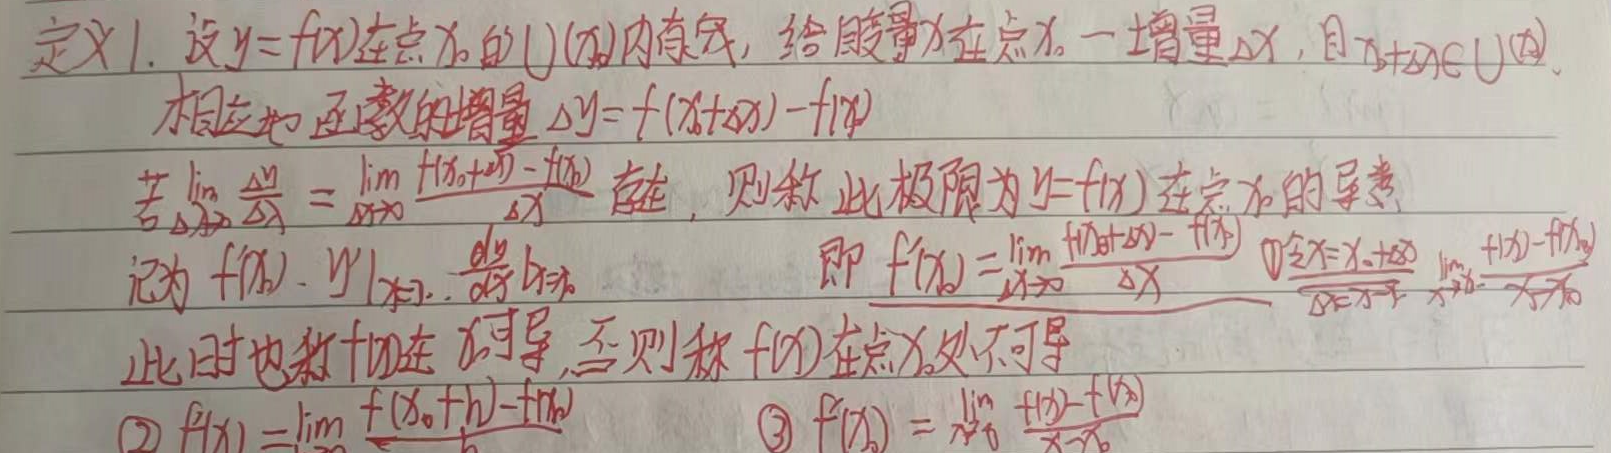 定义1. 设y=f(x)在点x₀的U(x₀)内有定, 给自变量x在点x₀一增量△x, 且x₀+△x∈U(x₀).
相应地 函数的增量 △y=f(x₀+△x)-f(x₀)
若 lim△x→0 △y/△x = lim△x→0 (f(x₀+△x)-f(x₀))/△x 存在, 则称此极限为y=f(x)在点x₀的导数
记为 f'(x₀). y'|x=x₀. dy/dx|x=x₀ 即 f'(x₀)=lim△x→0 (f(x₀+△x)-f(x₀))/△x ①令x=x₀+△x △x=x-x₀ limx→x₀ (f(x)-f(x₀))/(x-x₀)
此时也称f(x)在x₀可导, 否则称f(x)在点x₀处不可导
② f'(x₀)=lim (f(x₀+h)-f(x₀))/h ③ f'(x₀)=limx→x₀ (f(x)-f(x₀))/(x-x₀)